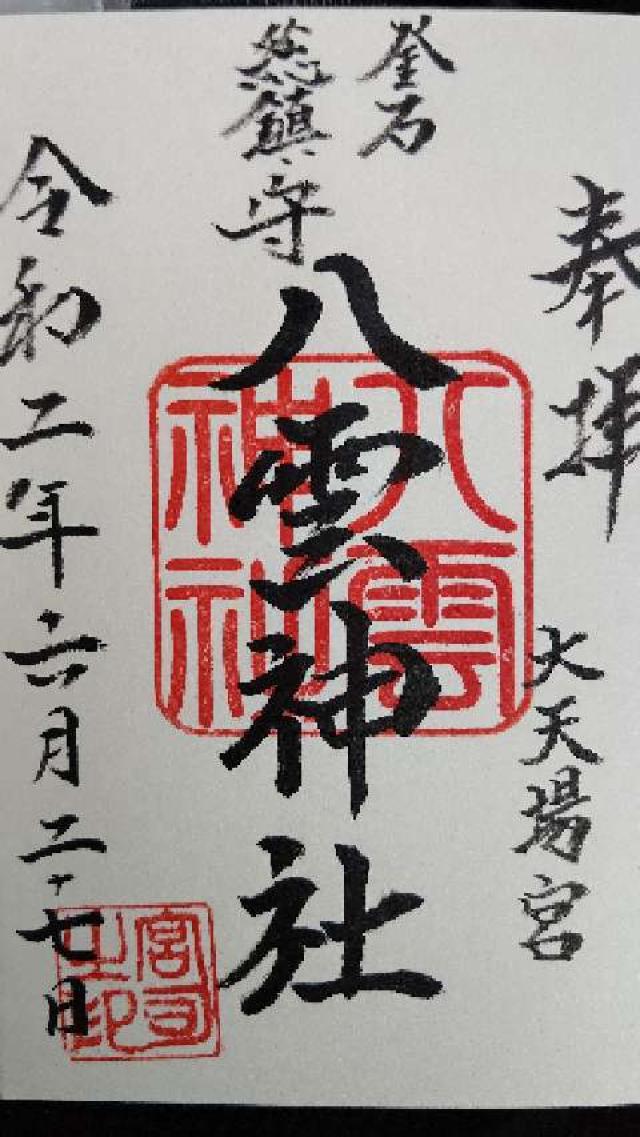 奉拝
大天場宮
釜石
総鎮守
八雲神社
八雲
神社
令和二年六月二十七日
宮司
之印